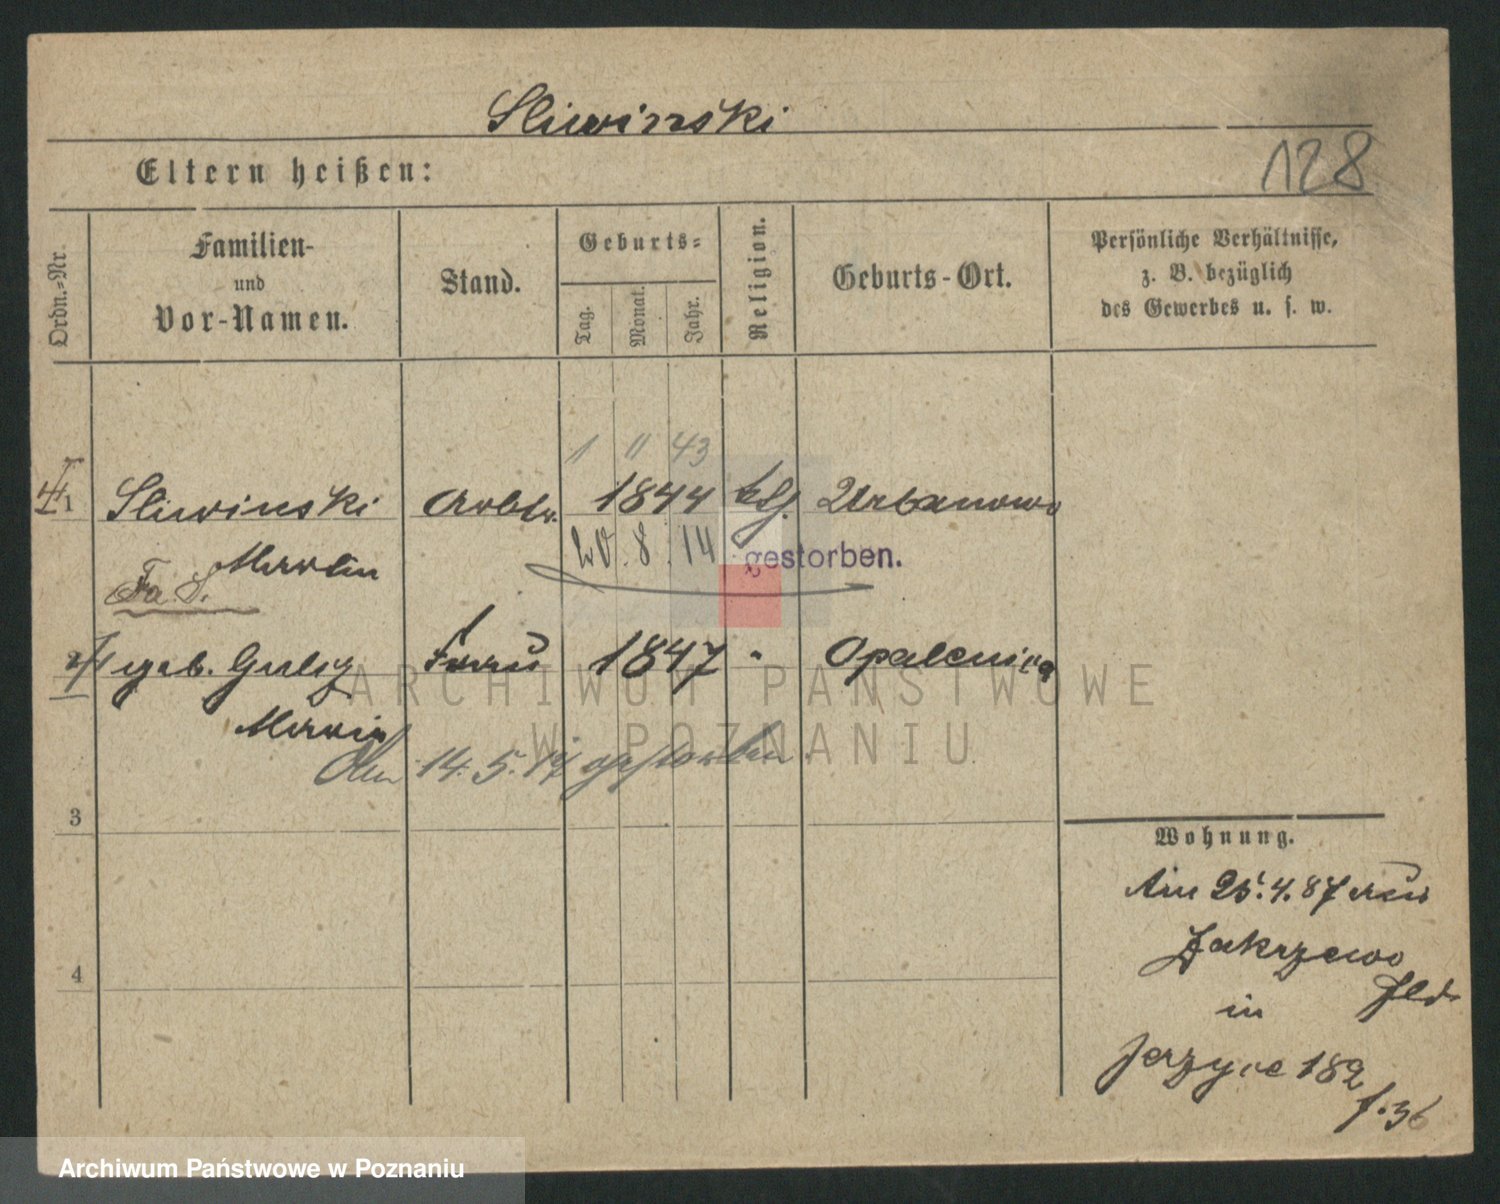 Sliwinski
Eltern heißen:
128
Ordn.-Nr.
Familien-
und
Vor-Namen.
Stand.
Geburts-
Tag.
Monat.
Jahr.
Religion.
Geburts-Ort.
Persönliche Verhältnisse,
z. B. bezüglich
des Gewerbes u. s. w.
1 11 43
1 Sliwinski Arbtr. 1844 kth. Urbanowo
Martin 20. 8. 14 gestorben.
geb. Frau 1847 " Opalenica
ARCHIWUM PAŃSTWOWE
W POZNANIU
14. 5. gestorben
3
4
Wohnung.
Am 25.4.87 aus
Zakrzewo
in
Jerzyce 182
f. 36
Archiwum Państwowe w Poznaniu